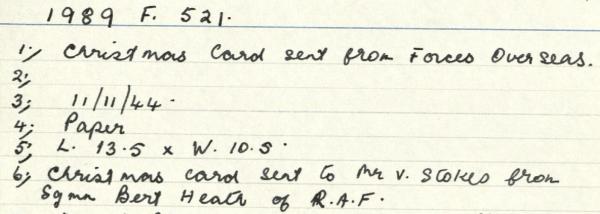 1989 F. 521.
1; Christmas Card sent from Forces Overseas.
2;
3; 11/11/44.
4; Paper
5; L. 13.5 x W. 10.5.
6; Christmas card sent to Mr V. Stokes from
Sgmn Bert Heath of R.A.F.